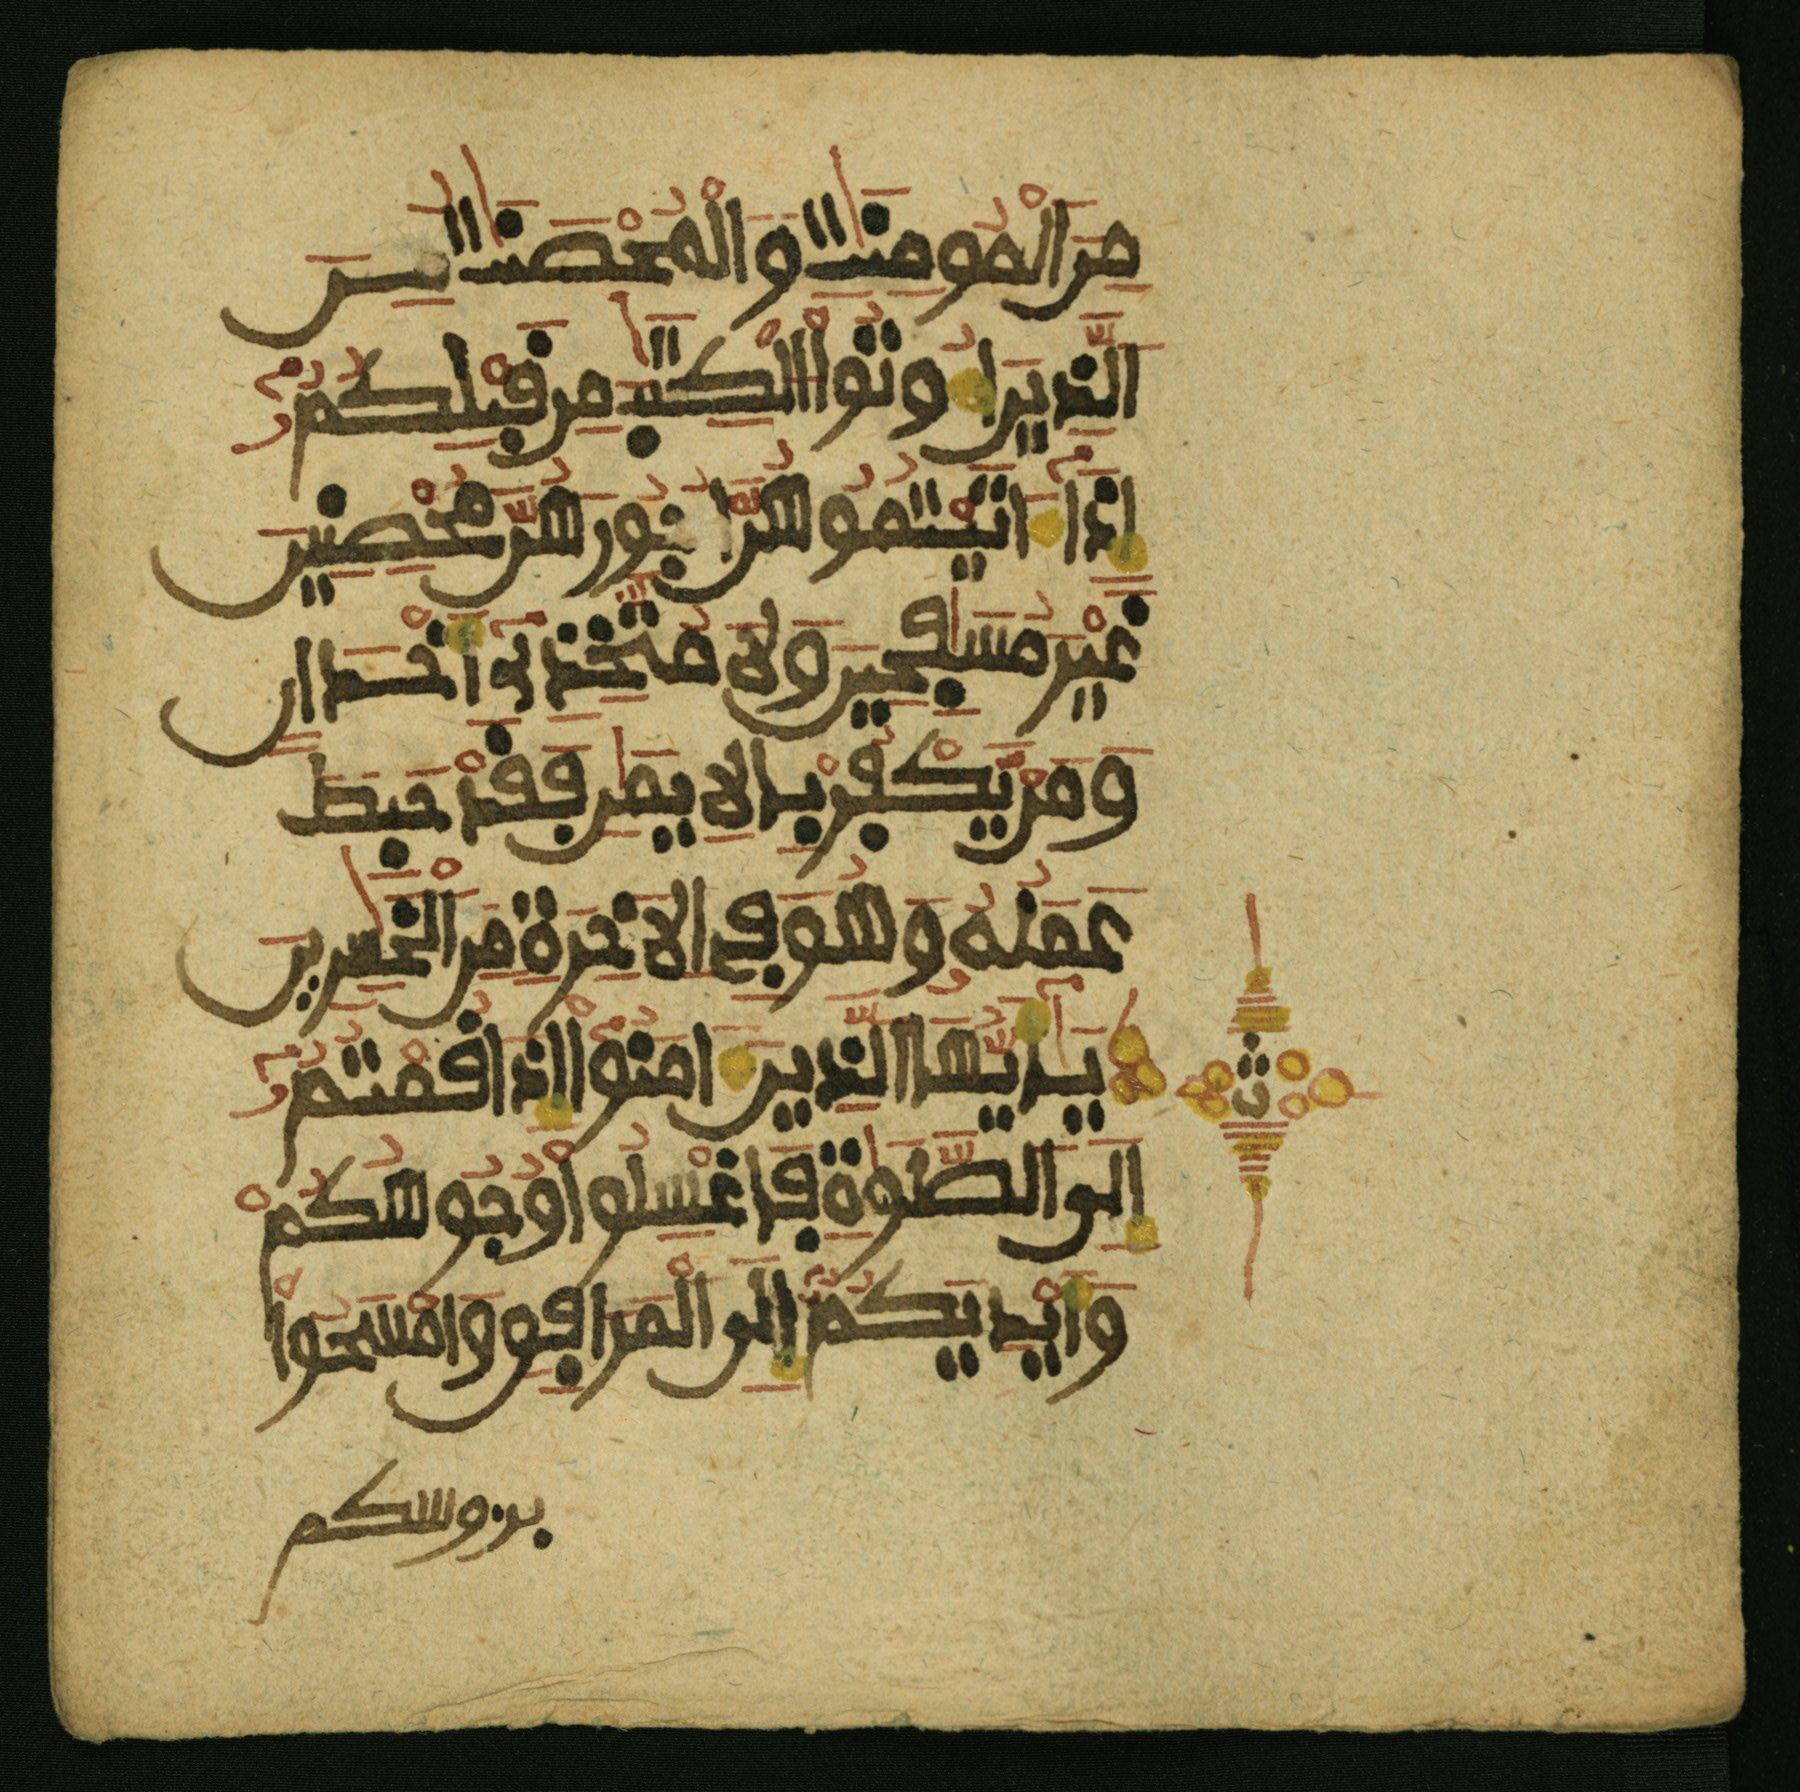 مِنَ الْمُومِنَٰتِ وَالْمُحْصَنَٰتُ مِنَ
الَّذِينَ أُوتُوا الْكِتَٰبَ مِن قَبْلِكُمُ
إِذَا ءَاتَيْتُمُوهُنَّ أُجُورَهُنَّ مُحْصِنِينَ
غَيْرَ مُسَٰفِحِينَ وَلَا مُتَّخِذِي أَخْدَانٍ
وَمَنْ يَّكْفُرْ بِالْإِيمَٰنِ فَقَدْ حَبِطَ
عَمَلُهُ وَهُوَ فِي الْأَخِرَةِ مِنَ الْخَٰسِرِينَ
يَٰأَيُّهَا الَّذِينَ ءَامَنُوا إِذَا قُمْتُمُ
إِلَى الصَّلَوٰةِ فَاغْسِلُوا وُجُوهَكُمْ
ث
وَأَيْدِيَكُمُ إِلَى الْمَرَافِقِ وَامْسَحُوا
بروسكم